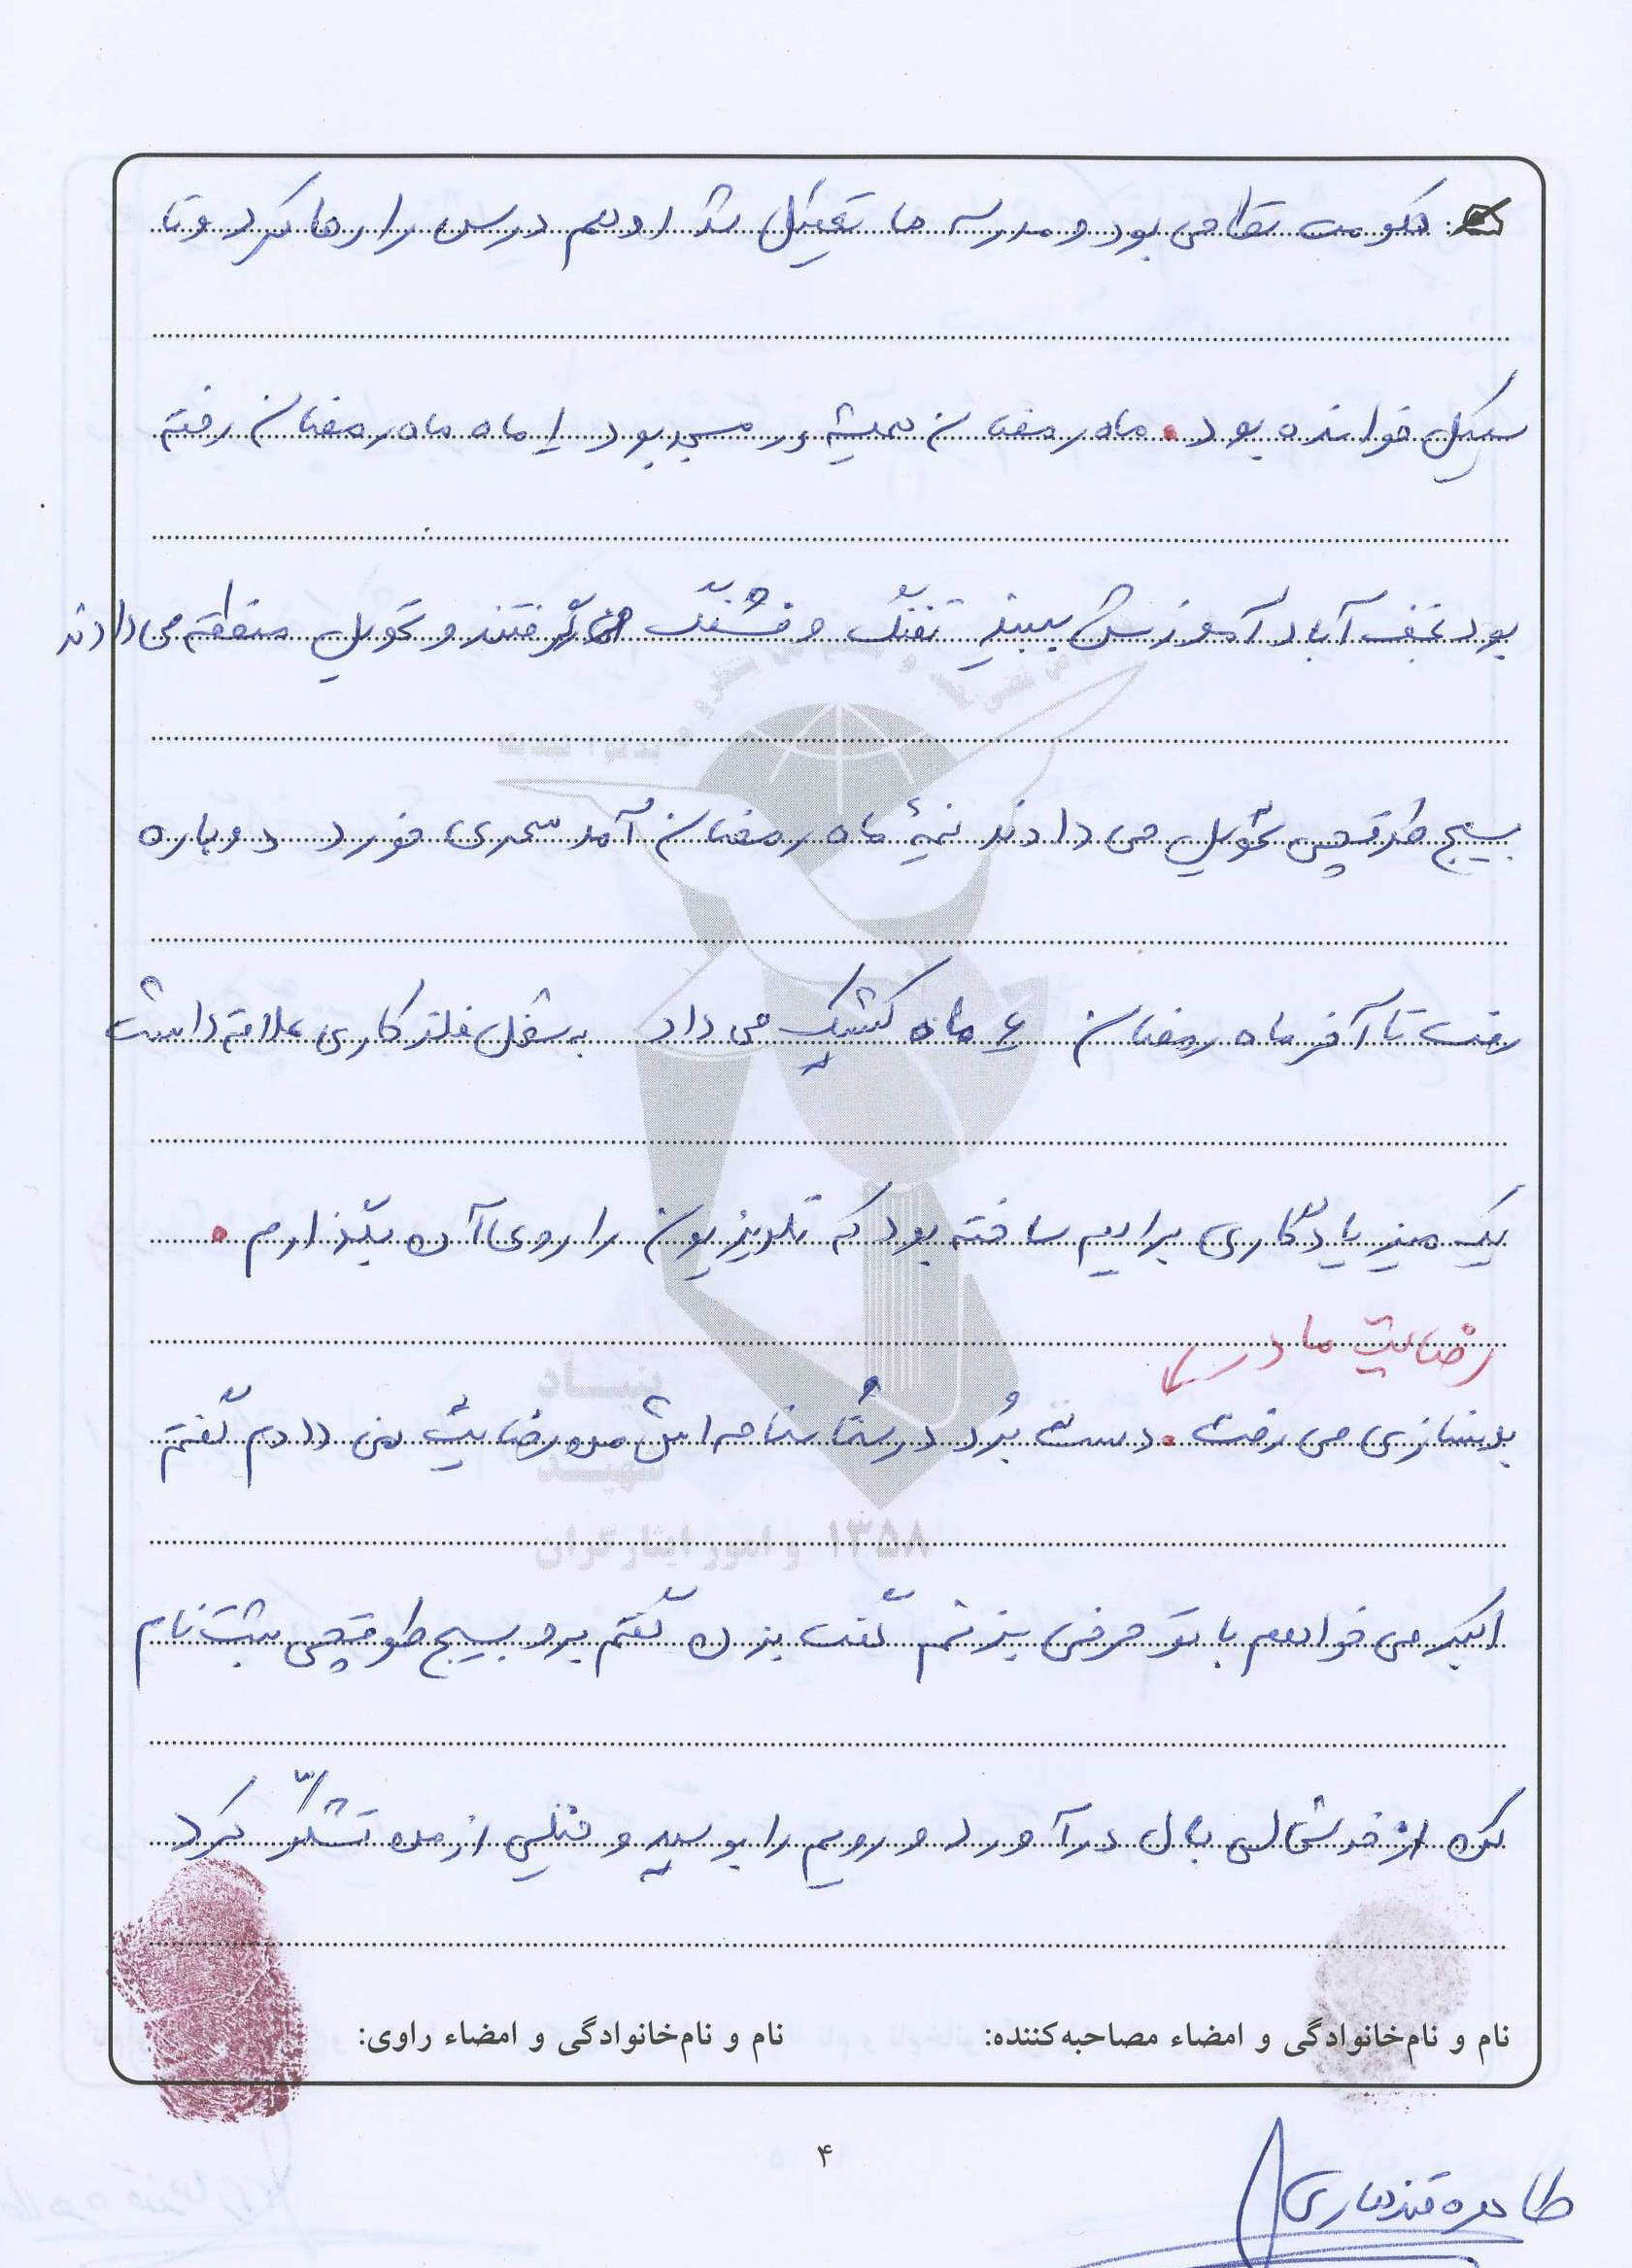 حکومت نظامی بود و مدرسه ها تعطیل شد او هم درس را رها کرد و تا
سیکل خوانده بود. ماه رمضان همیشه در مسجد بود ۱ ماه ماه رمضان رفته
بود نجف آباد آموزش ببیند تفنگ و فشنگ می گرفتند و تحویل منطقه می دادند
بسیج طوقچی تحویل می دادند نیمهٔ ماه رمضان آمد سحری خورد دوباره
رفت تا آخر ماه رمضان ۶ ماه کشیک می داد به شغل فلزکاری علاقه داشت
یک میز یادگاری برایم ساخته بود که تلویزیون را روی آن بگذارم.
رضایت مادر
بدنسازی می رفت. دست بُرد در شناسنامه اش من رضایت نمی دادم گفتم
اکبر می خواهم با تو حرفی بزنم گفت بزن گفتم برو بسیج طوقچی ثبت نام
کن از خوشحالی بال درآورد و رویم را بوسید و خیلی از من تشکّر کرد
نام و نام‌خانوادگی و امضاء مصاحبه‌کننده: نام و نام‌خانوادگی و امضاء راوی:
۴
طاهره قندهاری
بنیاد
شهید
و امور ایثارگران ۱۳۵۸